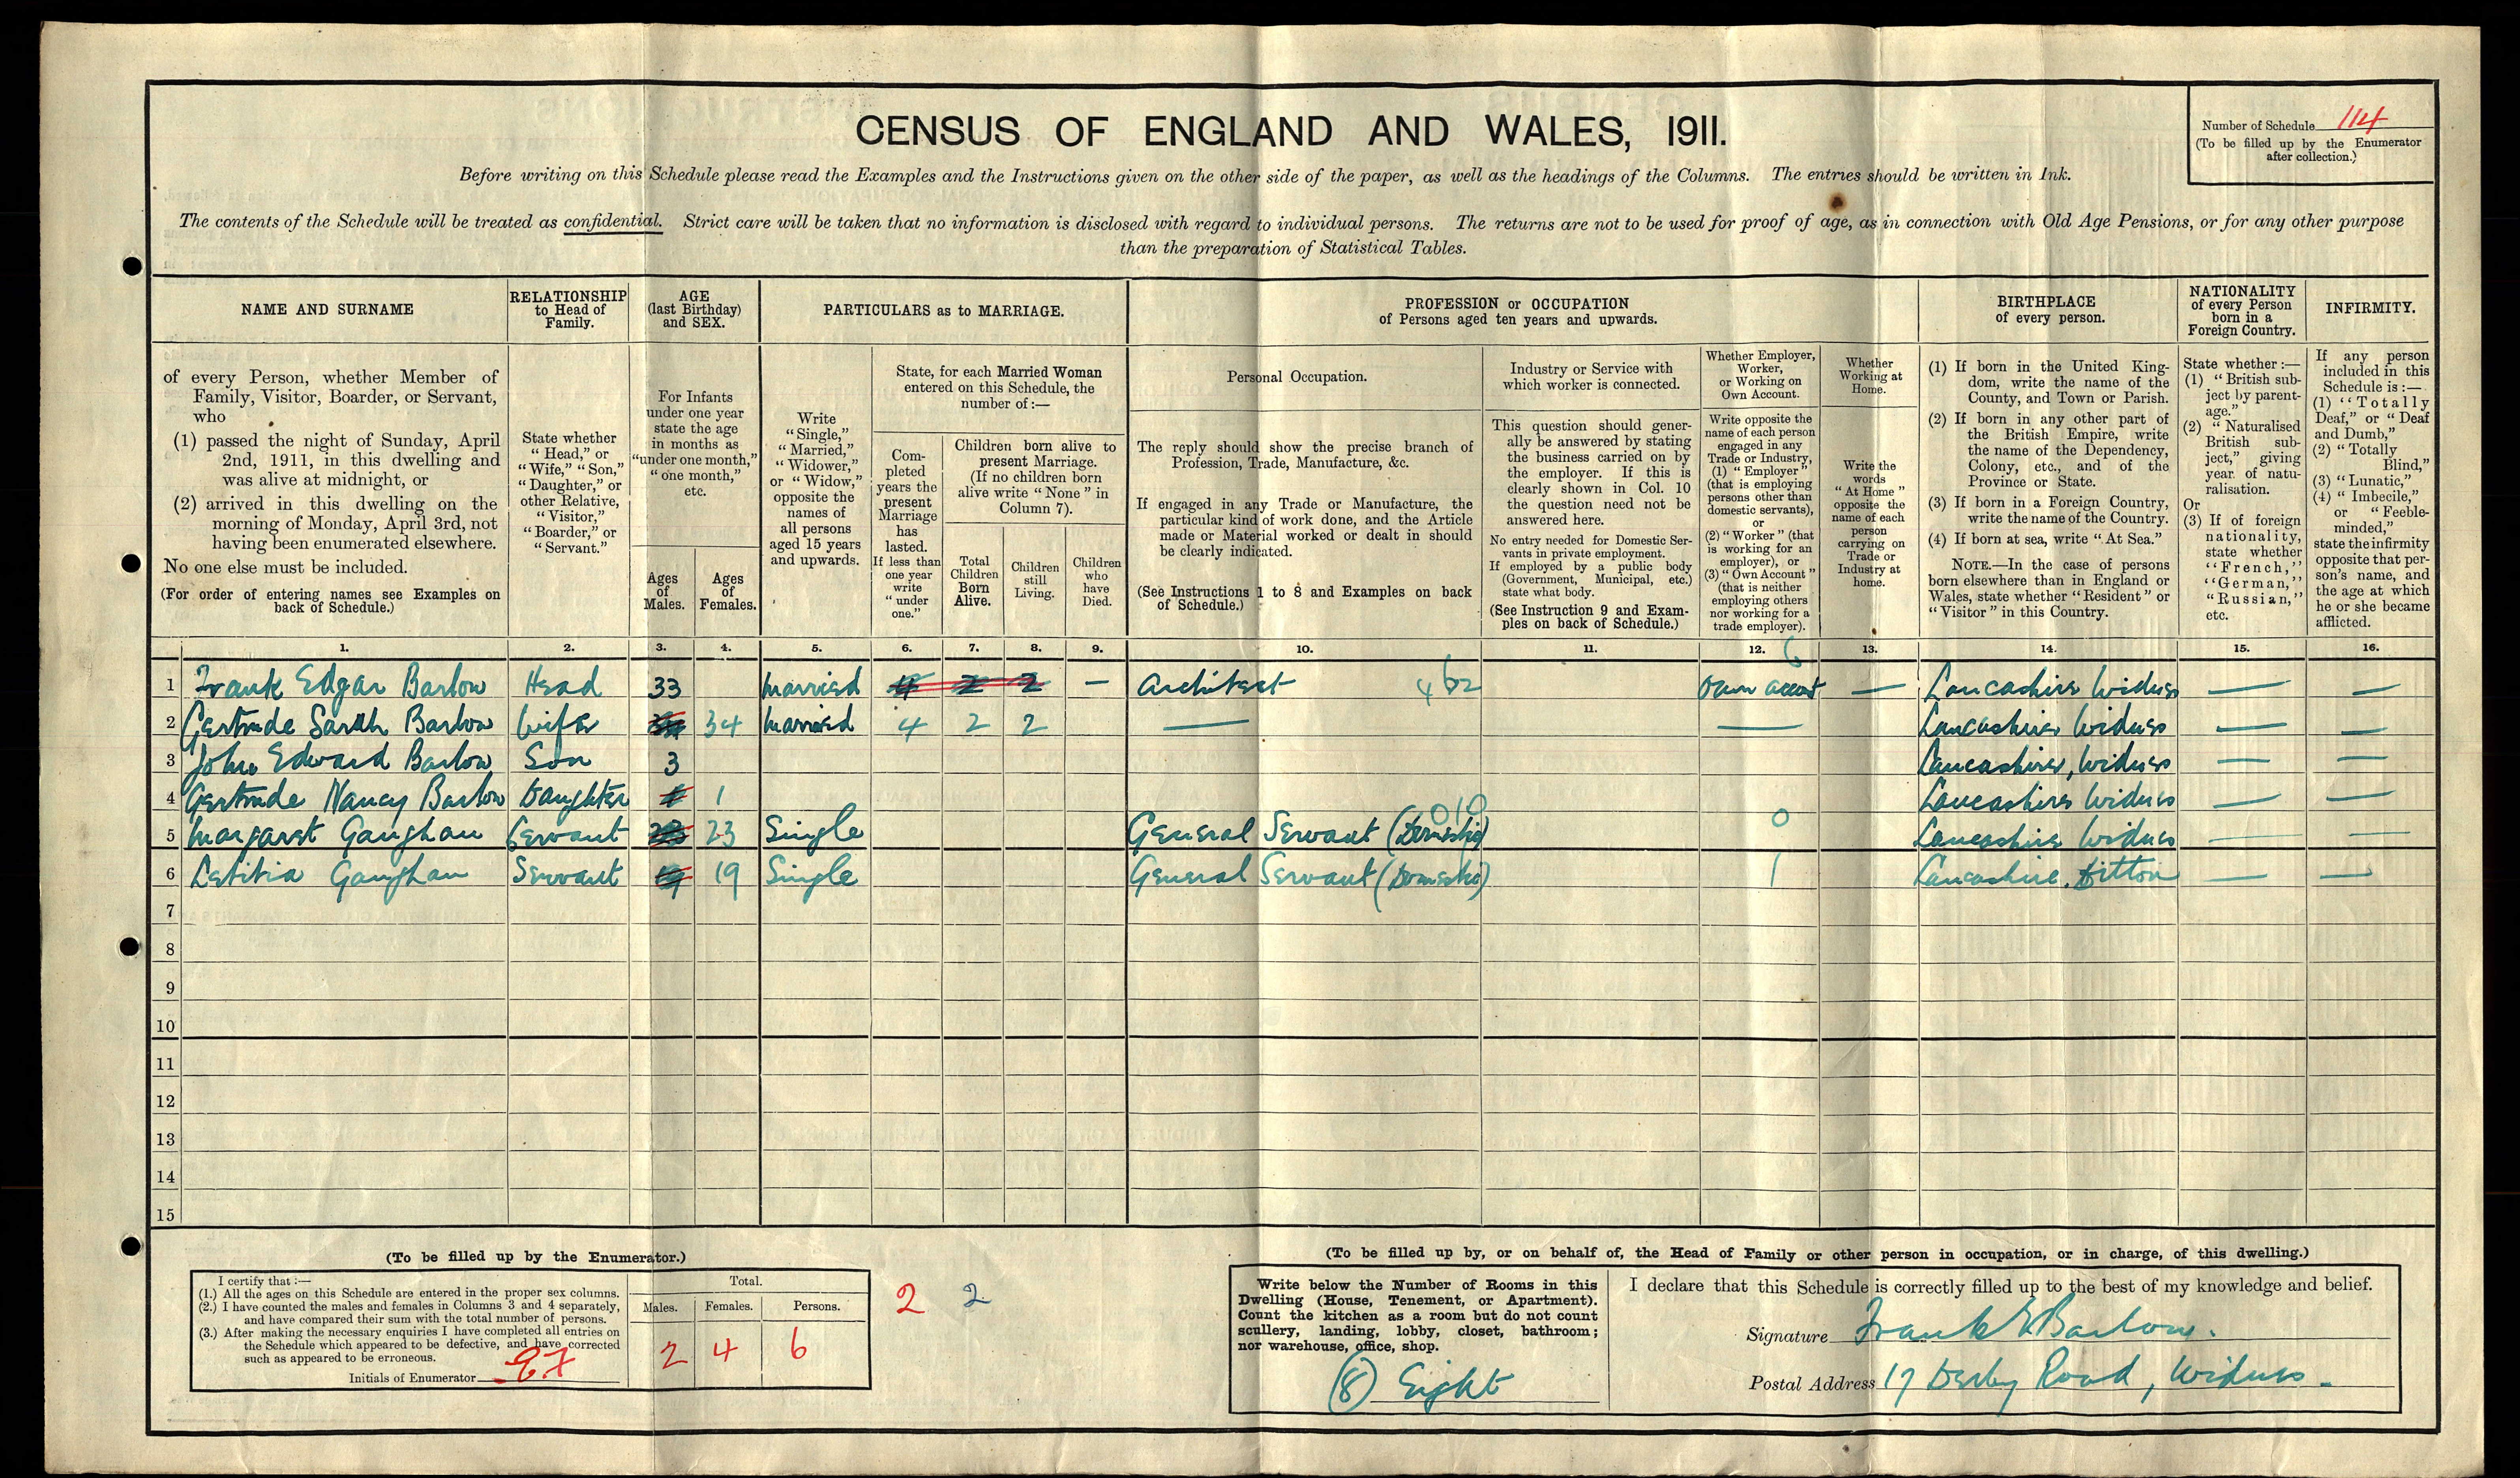 CENSUS OF ENGLAND AND WALES, 1911.
Number of Schedule 114
(To be filled up by the Enumerator
after collection.)
Before writing on this Schedule please read the Examples and the Instructions given on the other side of the paper, as well as the headings of the Columns. The entries should be written in Ink.
The contents of the Schedule will be treated as confidential. Strict care will be taken that no information is disclosed with regard to individual persons. The returns are not to be used for proof of age, as in connection with Old Age Pensions, or for any other purpose
than the preparation of Statistical Tables.
NAME AND SURNAME
RELATIONSHIP
to Head of
Family.
AGE
(last Birthday)
and SEX.
PARTICULARS as to MARRIAGE.
PROFESSION or OCCUPATION
of Persons aged ten years and upwards.
BIRTHPLACE
of every person.
NATIONALITY
of every Person
born in a
Foreign Country.
INFIRMITY.
of every Person, whether Member of
Family, Visitor, Boarder, or Servant,
who
(1) passed the night of Sunday, April
2nd, 1911, in this dwelling and
was alive at midnight, or
(2) arrived in this dwelling on the
morning of Monday, April 3rd, not
having been enumerated elsewhere.
No one else must be included.
(For order of entering names see Examples on
back of Schedule.)
State whether
"Head," or
"Wife," "Son,"
"Daughter," or
other Relative,
"Visitor,"
"Boarder," or
"Servant."
For Infants
under one year
state the age
in months as
"under one month,"
"one month,"
etc.
Ages
of
Males.
Ages
of
Females.
Write
"Single,"
"Married,"
"Widower,"
or "Widow,"
opposite the
names of
all persons
aged 15 years
and upwards.
State, for each Married Woman
entered on this Schedule, the
number of:—
Com-
pleted
years the
present
Marriage
has
lasted.
If less than
one year
write
"under
one."
Children born alive to
present Marriage.
(If no children born
alive write "None" in
Column 7).
Total
Children
Born
Alive.
Children
still
Living.
Children
who
have
Died.
Personal Occupation.
The reply should show the precise branch of
Profession, Trade, Manufacture, &c.
If engaged in any Trade or Manufacture, the
particular kind of work done, and the Article
made or Material worked or dealt in should
be clearly indicated.
(See Instructions 1 to 8 and Examples on back
of Schedule.)
Industry or Service with
which worker is connected.
This question should gener-
ally be answered by stating
the business carried on by
the employer. If this is
clearly shown in Col. 10
the question need not be
answered here.
No entry needed for Domestic Ser-
vants in private employment.
If employed by a public body
(Government, Municipal, etc.)
state what body.
(See Instruction 9 and Exam-
ples on back of Schedule.)
Whether Employer,
Worker,
or Working on
Own Account.
Write opposite the
name of each person
engaged in any
Trade or Industry,
(1) "Employer"
(that is employing
persons other than
domestic servants),
or
(2) "Worker" (that
is working for an
employer), or
(3) "Own Account"
(that is neither
employing others
nor working for a
trade employer).
Whether
Working at
Home.
Write the
words
"At Home"
opposite the
name of each
person
carrying on
Trade or
Industry at
home.
(1) If born in the United King-
dom, write the name of the
County, and Town or Parish.
(2) If born in any other part of
the British Empire, write
the name of the Dependency,
Colony, etc., and of the
Province or State.
(3) If born in a Foreign Country,
write the name of the Country.
(4) If born at sea, write "At Sea."
NOTE.—In the case of persons
born elsewhere than in England or
Wales, state whether "Resident" or
"Visitor" in this Country.
State whether:—
(1) "British sub-
ject by parent-
age."
(2) "Naturalised
British sub-
ject," giving
year of natu-
ralisation.
Or
(3) If of foreign
nationality,
state whether
"French,"
"German,"
"Russian,"
etc.
If any person
included in this
Schedule is:—
(1) "Totally
Deaf," or "Deaf
and Dumb,"
(2) "Totally
Blind,"
(3) "Lunatic,"
(4) "Imbecile,"
or "Feeble-
minded,"
state the infirmity
opposite that per-
son's name, and
the age at which
he or she became
afflicted.
1. 2. 3. 4. 5. 6. 7. 8. 9. 10. 11. 12. 13. 14. 15. 16.
6
1 Frank Edgar Barlow Head 33 Married 4 2 2 — Architect 462 Own account — Lancashire Widnes — —
2 Gertrude Sarah Barlow Wife 34 Married 4 2 2 — — Lancashire Widnes — —
3 John Edward Barlow Son 3 Lancashire, Widnes — —
4 Gertrude Nancy Barlow Daughter 1 1 Lancashire Widnes — —
010 0
5 Margaret Gaughan Servant 23 23 Single General Servant (Domestic) Lancashire Widnes — —
6 Letitia Gaughan Servant 19 19 Single General Servant (Domestic) 1 Lancashire. Ditton — —
7
8
9
10
11
12
13
14
15
(To be filled up by the Enumerator.)
I certify that:—
(1.) All the ages on this Schedule are entered in the proper sex columns.
(2.) I have counted the males and females in Columns 3 and 4 separately,
and have compared their sum with the total number of persons.
(3.) After making the necessary enquiries I have completed all entries on
the Schedule which appeared to be defective, and have corrected
such as appeared to be erroneous.
Initials of Enumerator
Total.
Males. Females. Persons.
2 4 6
2 2
(To be filled up by, or on behalf of, the Head of Family or other person in occupation, or in charge, of this dwelling.)
Write below the Number of Rooms in this
Dwelling (House, Tenement, or Apartment).
Count the kitchen as a room but do not count
scullery, landing, lobby, closet, bathroom;
nor warehouse, office, shop.
(8) Eight
I declare that this Schedule is correctly filled up to the best of my knowledge and belief.
Signature Frank E Barlow.
Postal Address 17 Derby Road, Widnes.